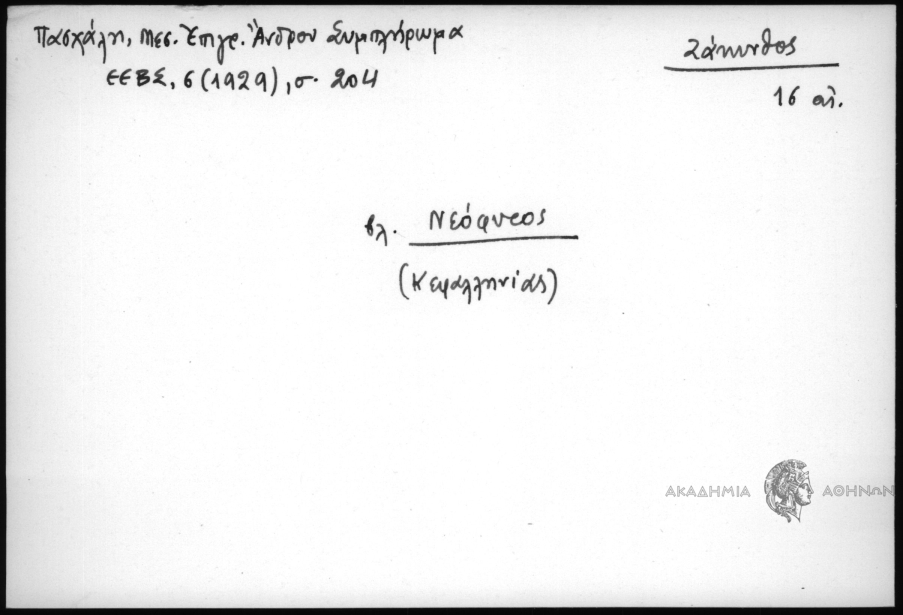 Πασχάλη, Μεσ. Ἐπιγρ. Ἄνδρου Συμπλήρωμα
ΕΕΒΣ, 6 (1929), σ. 204
Ζάκυνθος
16 αἰ.
βλ. Νεόφυτος
(Κεφαλληνίας)
ΑΚΑΔΗΜΙΑ ΑΘΗΝΩΝ